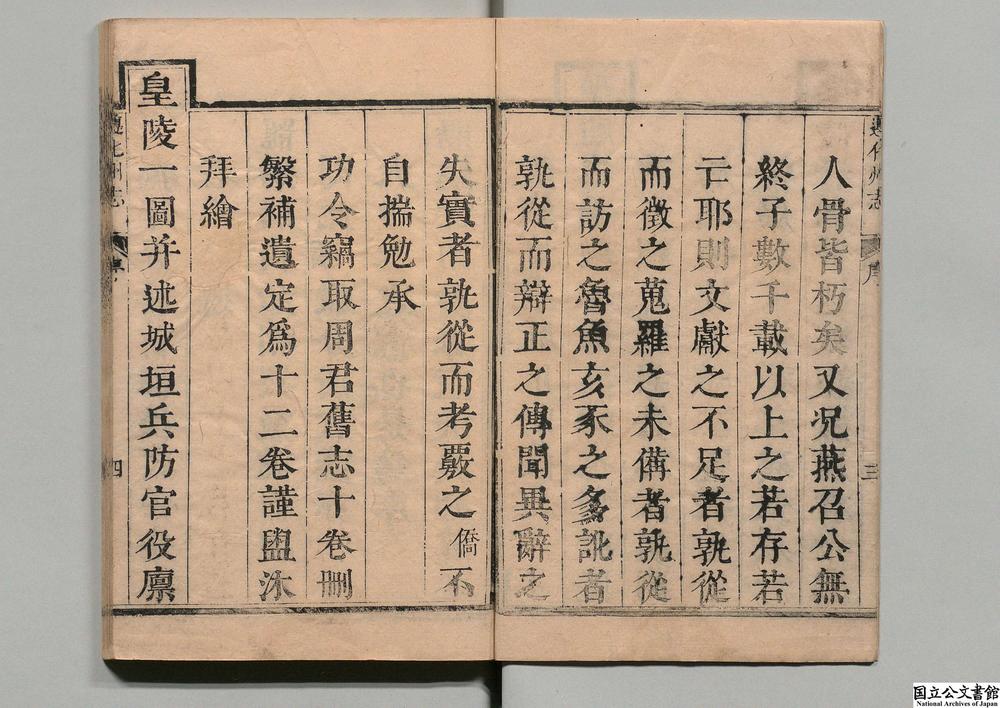 遵化州志
序
三
人骨皆朽矣又况燕召公無
終子數千載以上之若存若
亡耶則文獻之不足者孰從
而徵之蒐羅之未備者孰從
而訪之魯魚亥豕之多訛者
孰從而辯正之傳聞異辭之
失實者孰從而考覈之僑不
自揣勉承
功令竊取周君舊志十卷刪
繁補遺定爲十二卷謹盥沐
拜繪
皇陵一圖并述城垣兵防官役廪
遵化州志
序
四
国立公文書館
National Archives of Japan